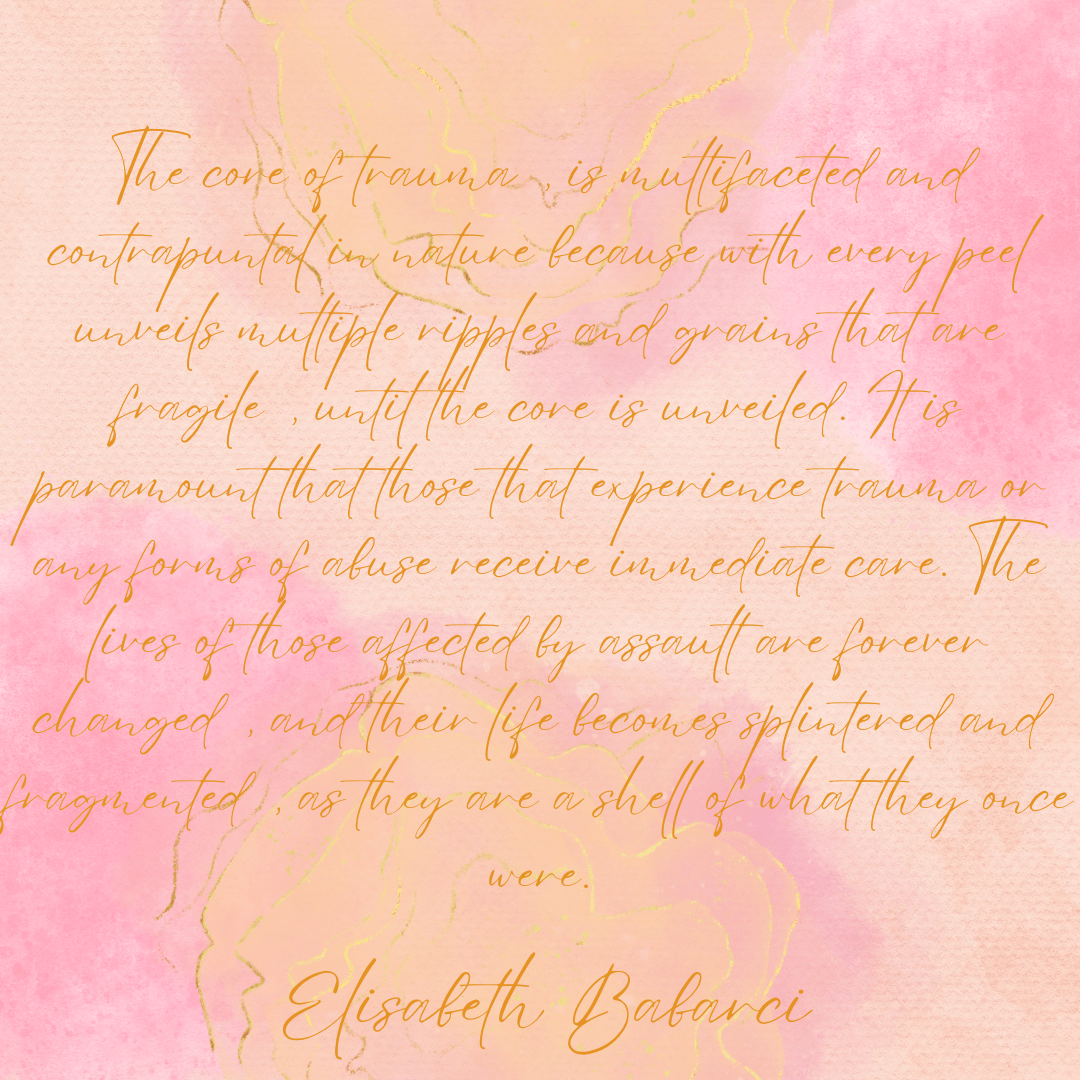 The core of trauma , is multifaceted and
contrapuntal in nature because with every peel
unveils multiple ripples and grains that are
fragile , until the core is unveiled. It is
paramount that those that experience trauma or
any forms of abuse receive immediate care. The
lives of those affected by assault are forever
changed , and their life becomes splintered and
fragmented , as they are a shell of what they once
were.
Elisabeth Babarci